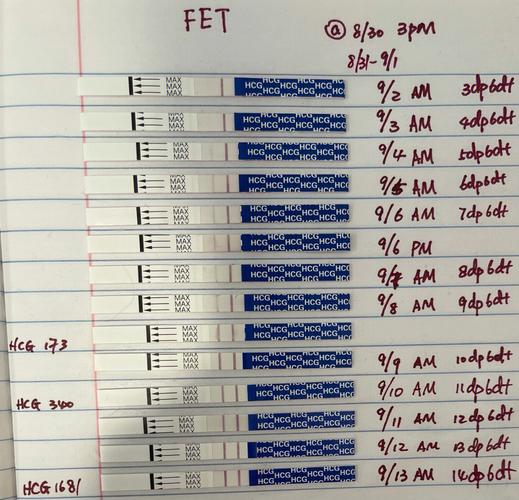 FET
@ 8/30 3pm
8/31-9/1
MAX MAX MAX HCG HCG HCG HCG HCG HCG 9/2 AM 3dp6dt
MAX MAX MAX HCG HCG HCG HCG HCG HCG 9/3 AM 4dp6dt
MAX MAX MAX HCG HCG HCG HCG HCG HCG 9/4 AM 5dp6dt
MAX MAX MAX HCG HCG HCG HCG HCG HCG 9/5 AM 6dp6dt
MAX MAX MAX HCG HCG HCG HCG HCG HCG 9/6 AM 7dp6dt
MAX MAX MAX HCG HCG HCG HCG HCG HCG 9/6 PM
MAX MAX MAX HCG HCG HCG HCG HCG HCG 9/7 AM 8dp6dt
MAX MAX MAX HCG HCG HCG HCG HCG HCG 9/8 AM 9dp6dt
HCG 173 MAX MAX MAX HCG HCG HCG HCG HCG HCG
MAX MAX MAX HCG HCG HCG HCG HCG HCG 9/9 AM 10dp6dt
HCG 340 MAX MAX MAX HCG HCG HCG HCG HCG HCG 9/10 AM 11dp6dt
MAX MAX MAX HCG HCG HCG HCG HCG HCG 9/11 AM 12dp6dt
MAX MAX MAX HCG HCG HCG HCG HCG HCG 9/12 AM 13dp6dt
HCG 1681 MAX MAX MAX HCG HCG HCG HCG HCG HCG 9/13 AM 14dp6dt